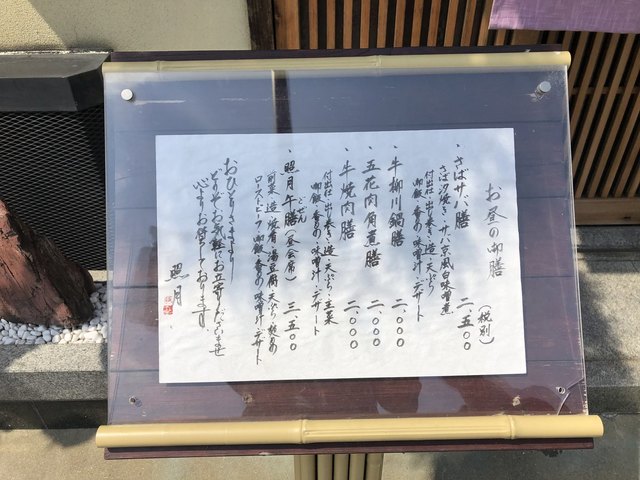 お昼の御膳
(税別)
・さばサバ膳 二、五〇〇
さば汐焼き・サバ京風白味噌煮
付出し・出し巻き・造り・天ぷら
御飯・香のもの・味噌汁・デザート
・牛柳川鍋膳 二、〇〇〇
・五花肉角煮膳 二、〇〇〇
・牛焼肉膳 二、〇〇〇
付出し・出し巻き・造り・天ぷら・主菜
御飯・香のもの・味噌汁・デザート
・照月午膳(昼会席) 三、五〇〇
ごぜん
前菜・造り・焼肴・湯豆腐・天ぷら・
ローストビーフ・御飯・香のもの・味噌汁・デザート
おひとりさまでも
どうぞお気軽にお立寄りくださいませ
心よりお待ちしております
照月